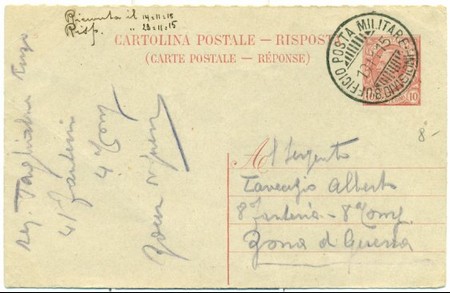 Ricevuta il 14-11-15
Risp. " 23-11-15
CARTOLINA POSTALE - RISPOSTA
(CARTE POSTALE - RÉPONSE)
UFFICIO POSTA MILITARE
10
8-
Al Sergente
Alberto
8° Fanteria - 8ª Comp.
Zona di Guerra
Serg. Tagliabue Enzo
41° Fanteria
4ª Comp
Zona